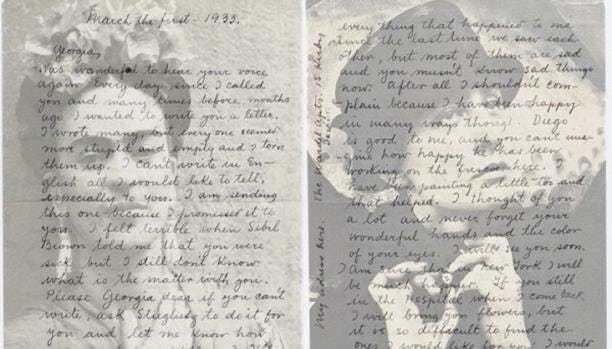 March the first. 1933.
Georgia,
Was wonderful to hear your voice
again. Every day since I called
you and many times before, months
ago I wanted to write you a letter.
I wrote many, but every one seemed
more stupid and empty and I torn
them up. I can't write in En-
glish all I would like to tell,
especially to you. I am sending
this one because I promised it to
you. I felt terrible when Sibil
Brown told me that you were
sick but I still don't know
what is the matter with you.
Please Georgia dear if you can't
write, ask Stieglitz to do it for
you and let me know how
every thing that happened to me
since the last time we saw each
other, but most of them are sad
and you mustn't know sad things
now. After all I shouldn't com-
plain because I have been happy
in many ways though. Diego
is good to me, and you can't ima-
gine how happy he has been
working on the frescoes here. I
have been painting a little too and
that helped. I thought of you
a lot and never forget your
wonderful hands and the color
of your eyes. I will see you soon.
I am sure that in New York I will
be much happier. If you still
in the Hospital when I come back
I will bring you flowers, but
it is so difficult to find the
ones I would like for you. I would
My address here. The Wardell Apts. 15 Kirby